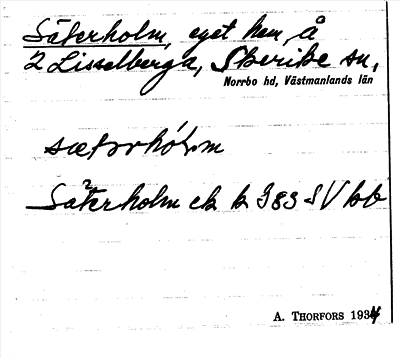 Säterholm, eget hem, å
2 Lisselberga, Skerike sn,
Norrbo hd, Västmanlands län
Säterholm ek k 983 SV bb
A. THORFORS 1934